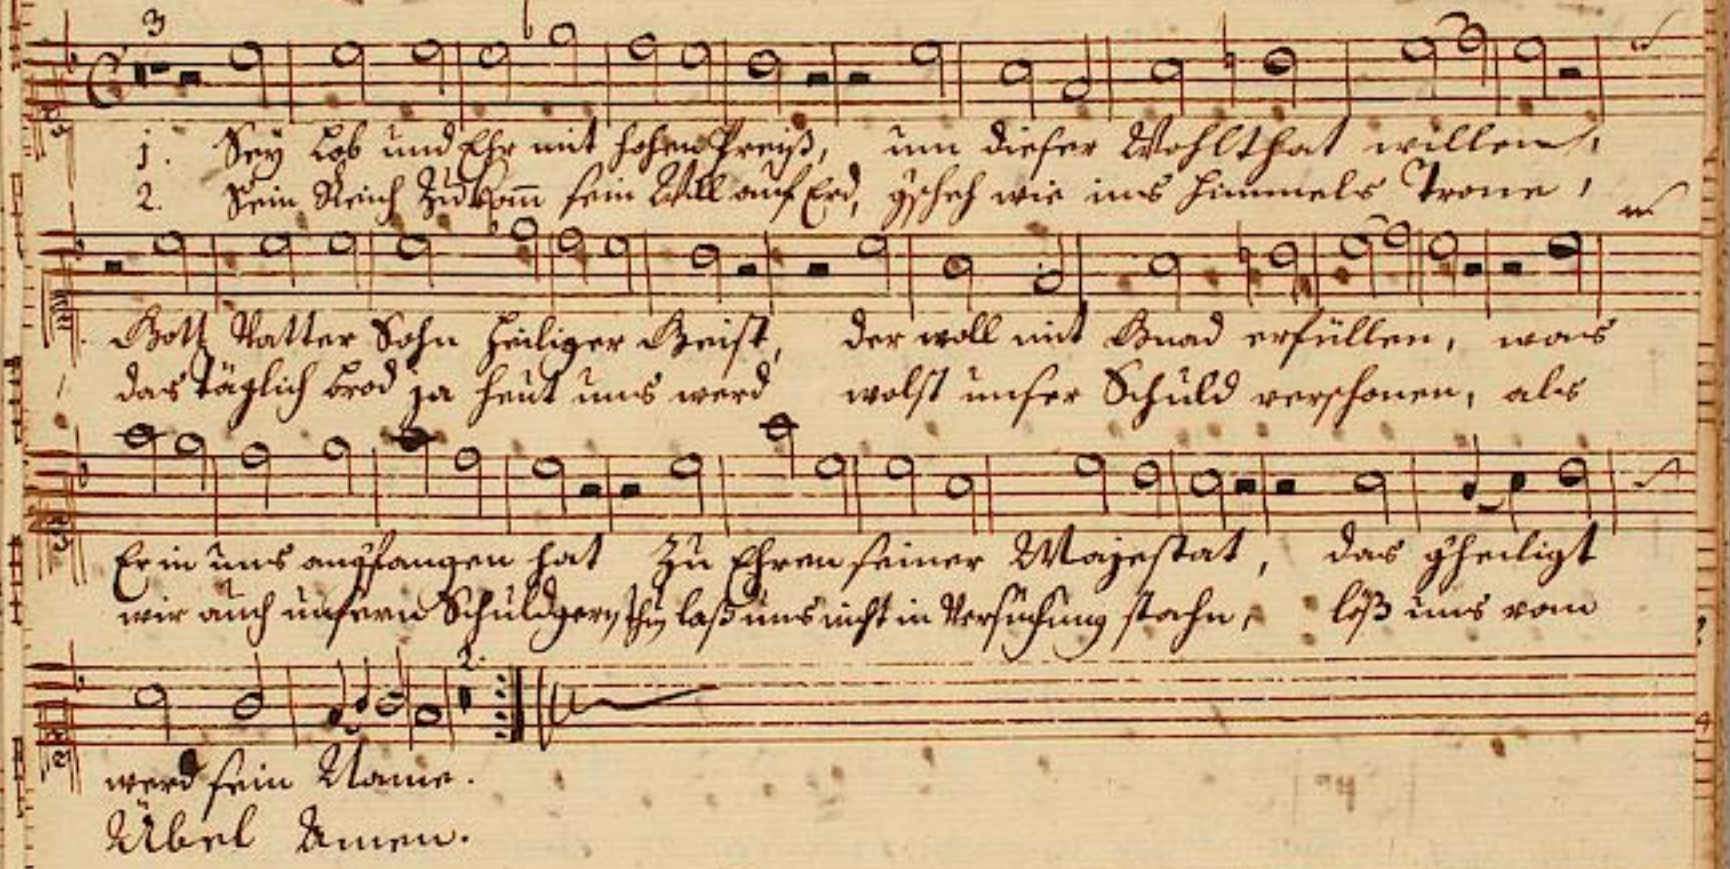 3
1. Sey Lob und Ehr mit hohen Preiß, um dieser Wohlthat willen,
2. Sein Reich Zukom̄ sein Will auf Erd, gscheh wie ins Himmels Trone,
Gott Vatter Sohn Heiliger Geist, der woll mit Gnad erfüllen, was
das Täglich Brod ja heut uns werd wolst unser Schuld verschonen, als
Er in uns angfangen hat Zu Ehren seiner Majestat, das gheiligt
wir auch unsern Schuldgern thun laß uns nicht in Versuchung stahn, löß uns vom
2.
werd sein Name.
Übel Amen.